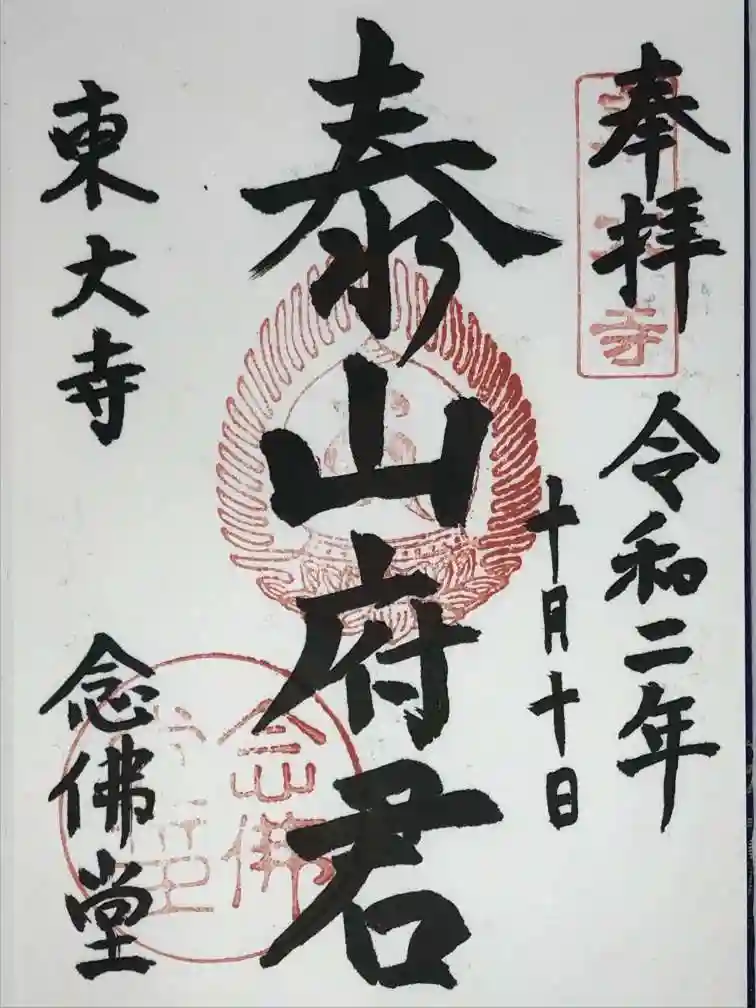 奉拝
令和二年
十月十日
泰山府君
東大寺
念佛堂